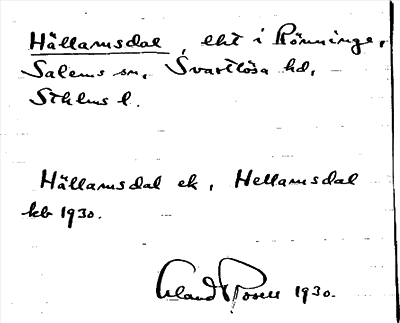 Hällamsdal, lht i Rönninge,
Salems sn, Svartlösa hd,
Sthlms l.
Hällamsdal ek, Hellamsdal
kb 1930.
Erland Rosell 1930.